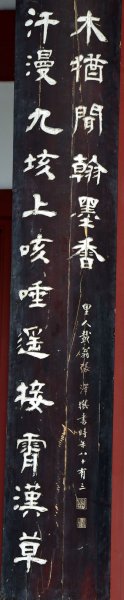 汗漫九垓上咳唾遥接霄漢草
木猶聞翰墨香
里人戴翁張撰書時年八十有三